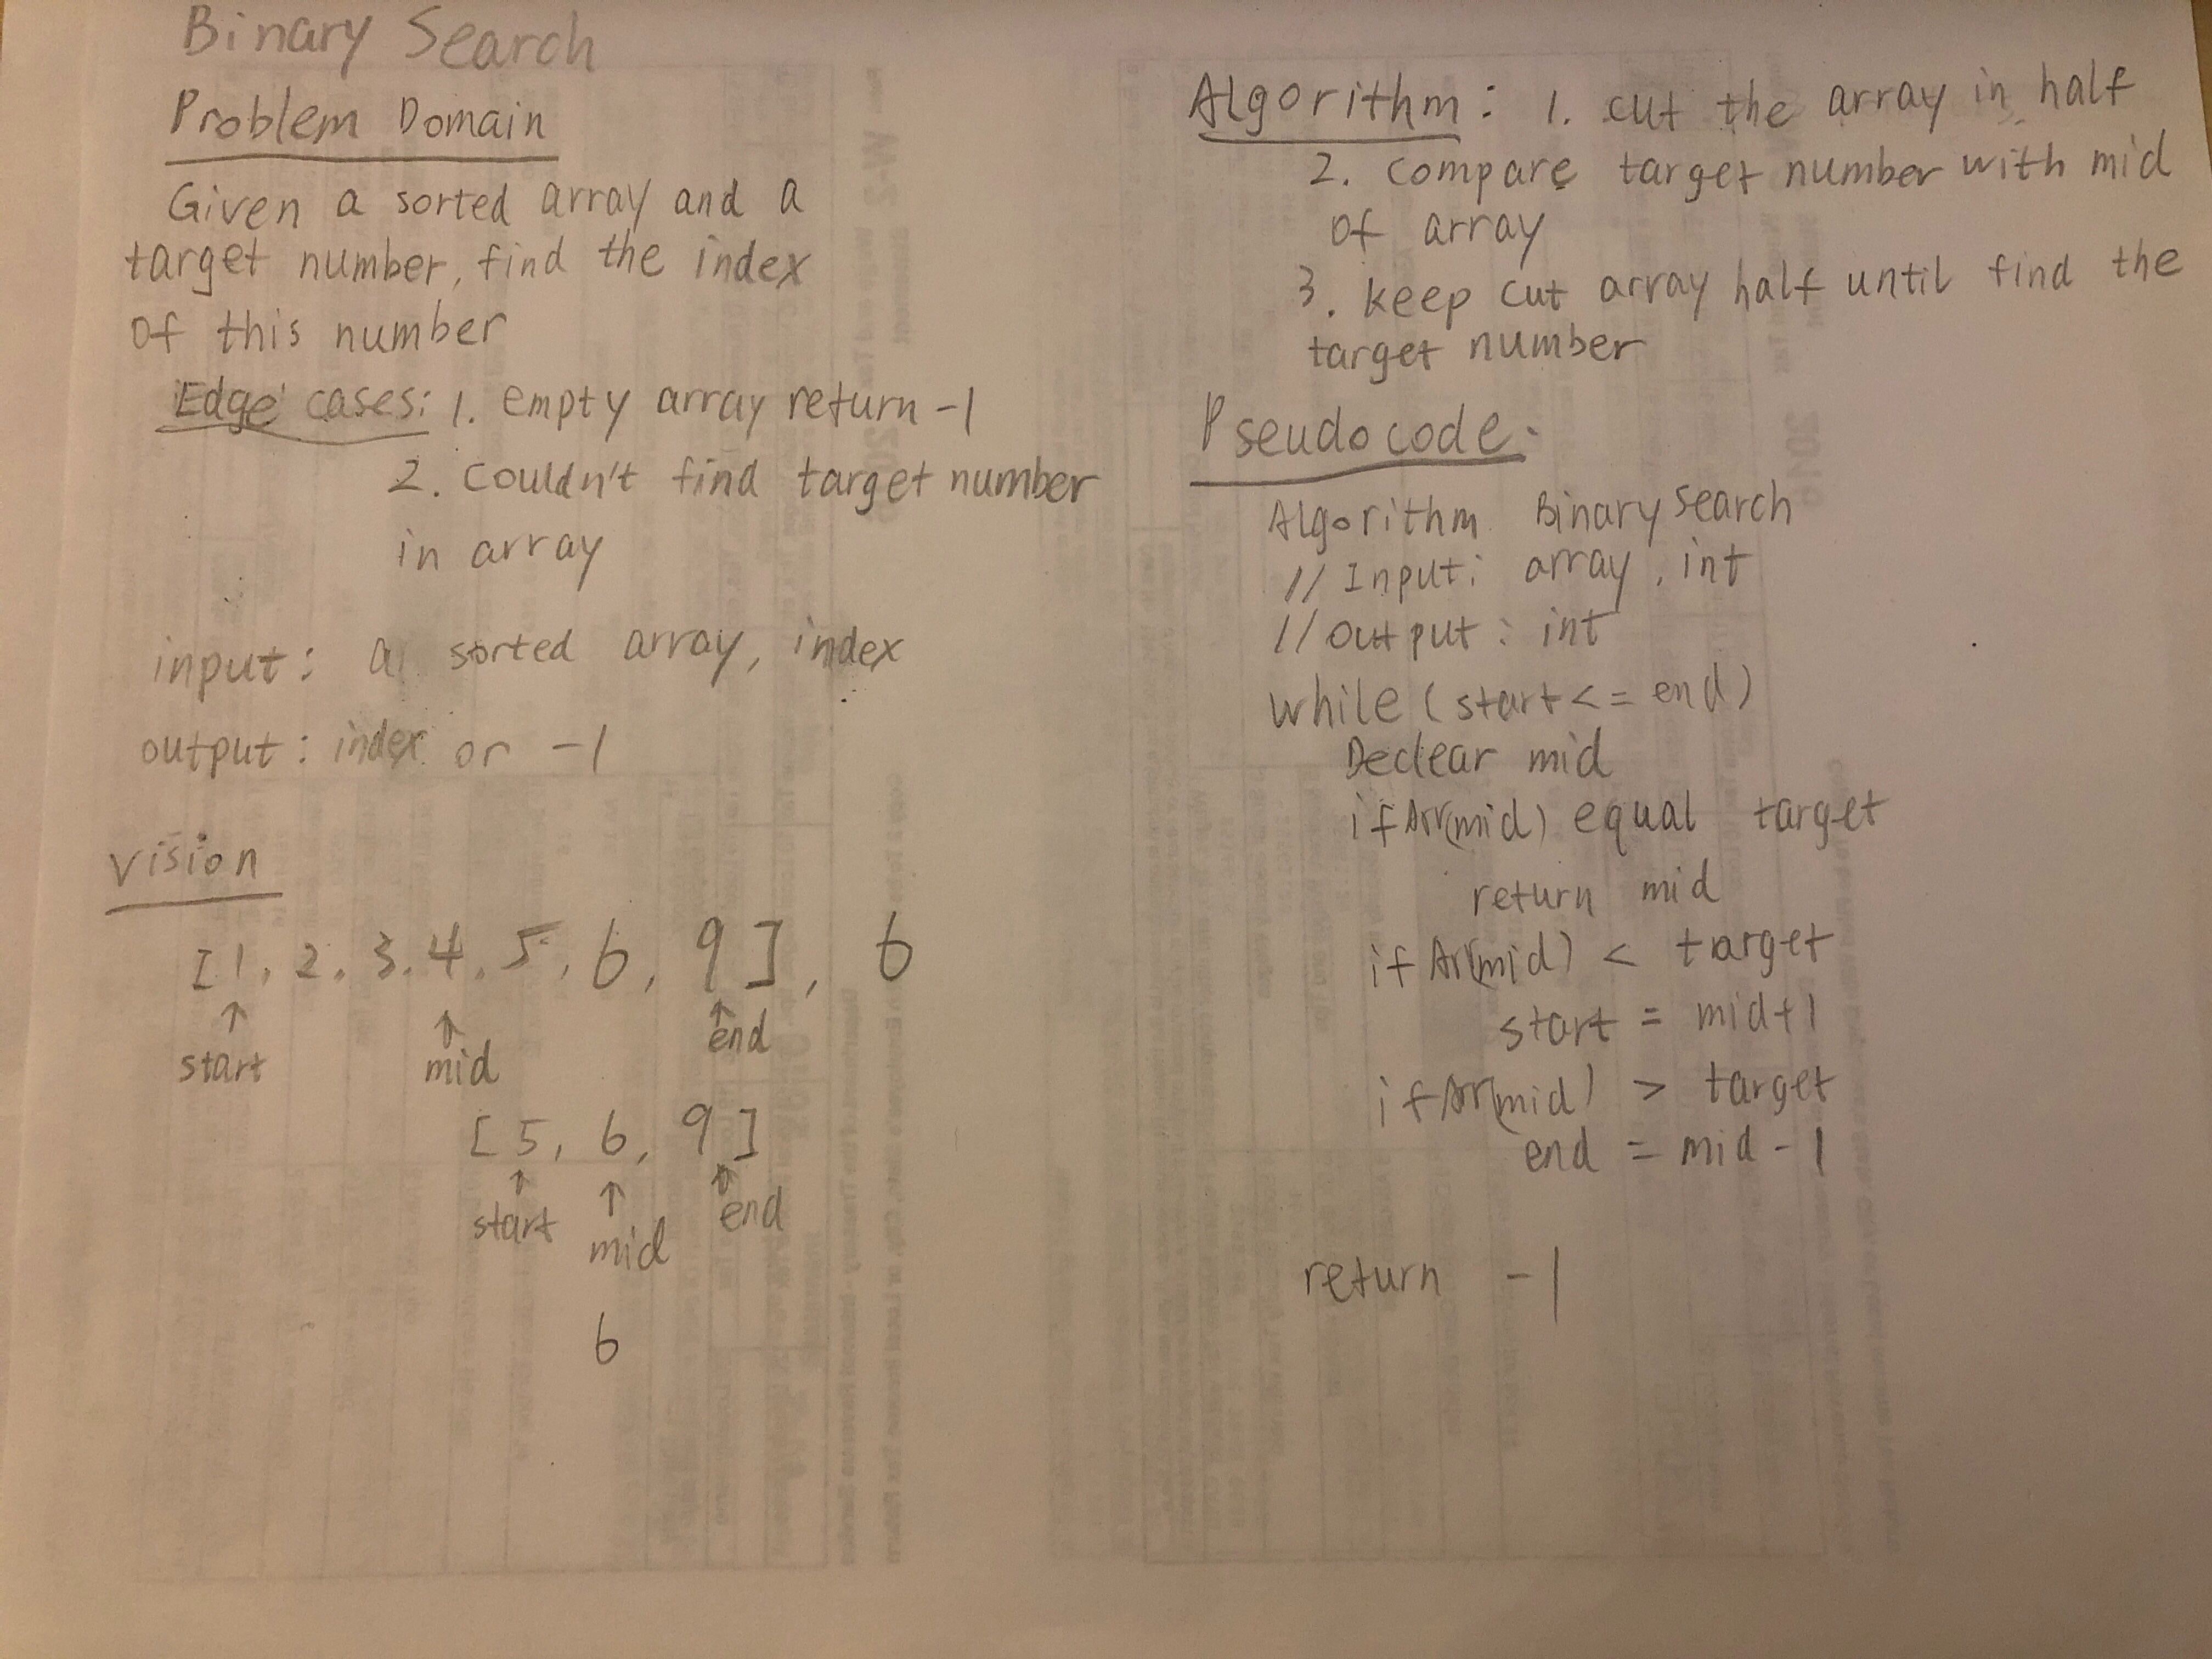 Binary Search
Problem Domain
Given a sorted array and a
target number, find the index
of this number
Edge cases: 1. empty array return -1
2. couldn't find target number
in array
input: a sorted array, index
output: index or -1
vision
[1, 2, 3, 4, 5, 6, 9], 6
start mid end
[5, 6, 9]
start mid end
6
Algorithm: 1. cut the array in half
2. compare target number with mid
of array
3. keep cut array half until find the
target number
Pseudo code.
Algorithm Binary search
// Input: array, int
// output: int
while (start <= end)
Declear mid
if Arr(mid) equal target
return mid
if Arr(mid) < target
start = mid+1
if Arr(mid) > target
end = mid-1
return -1